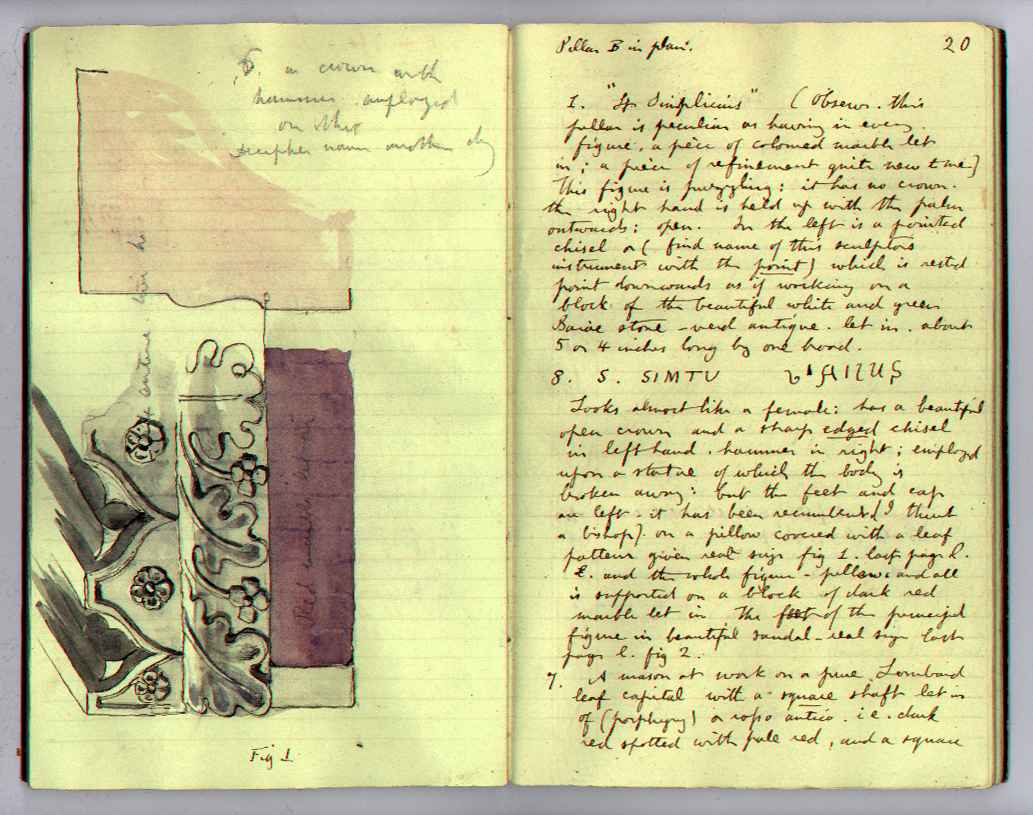 in crown with
hammer. employed
on other
decipher name another day
Red marble
Fig 1.
Pillar B in plan.
20
1. "St Simplicius" (Observe. this
pillar is peculiar as having in every
figure, a piece of coloured marble let
in; a piece of refinement quite new to me)
This figure is puzzling: it has no crown.
the right hand is held up with the palm
outwards: open. In the left is a pointed
chisel or (find name of this sculptors
instrument with the point) which is rested
point downwards as if working on a
block of the beautiful white and green
stone - verd antique. let in. about
5 or 4 inches long by one broad.
8. S. SIMTU
Looks almost like a female: has a beautiful
open crown and a sharp edged chisel
in left hand. hammer in right; employed
upon a statue of which the body is
broken away: but the feet and cap
are left. it has been recumbent (I think
a bishop). on a pillow covered with a leaf
pattern given real size fig 1. last page l.
l. and the whole figure - pillow: and all
is supported on a block of dark red
marble let in. The feet of the principal
figure in beautiful sandal - real size last
page l. fig 2.
7. A mason at work on a pure Lombard
leaf capital with a square shaft let in
of (porphyry) or rosso antico. i.e. dark
red spotted with pale red, and a square